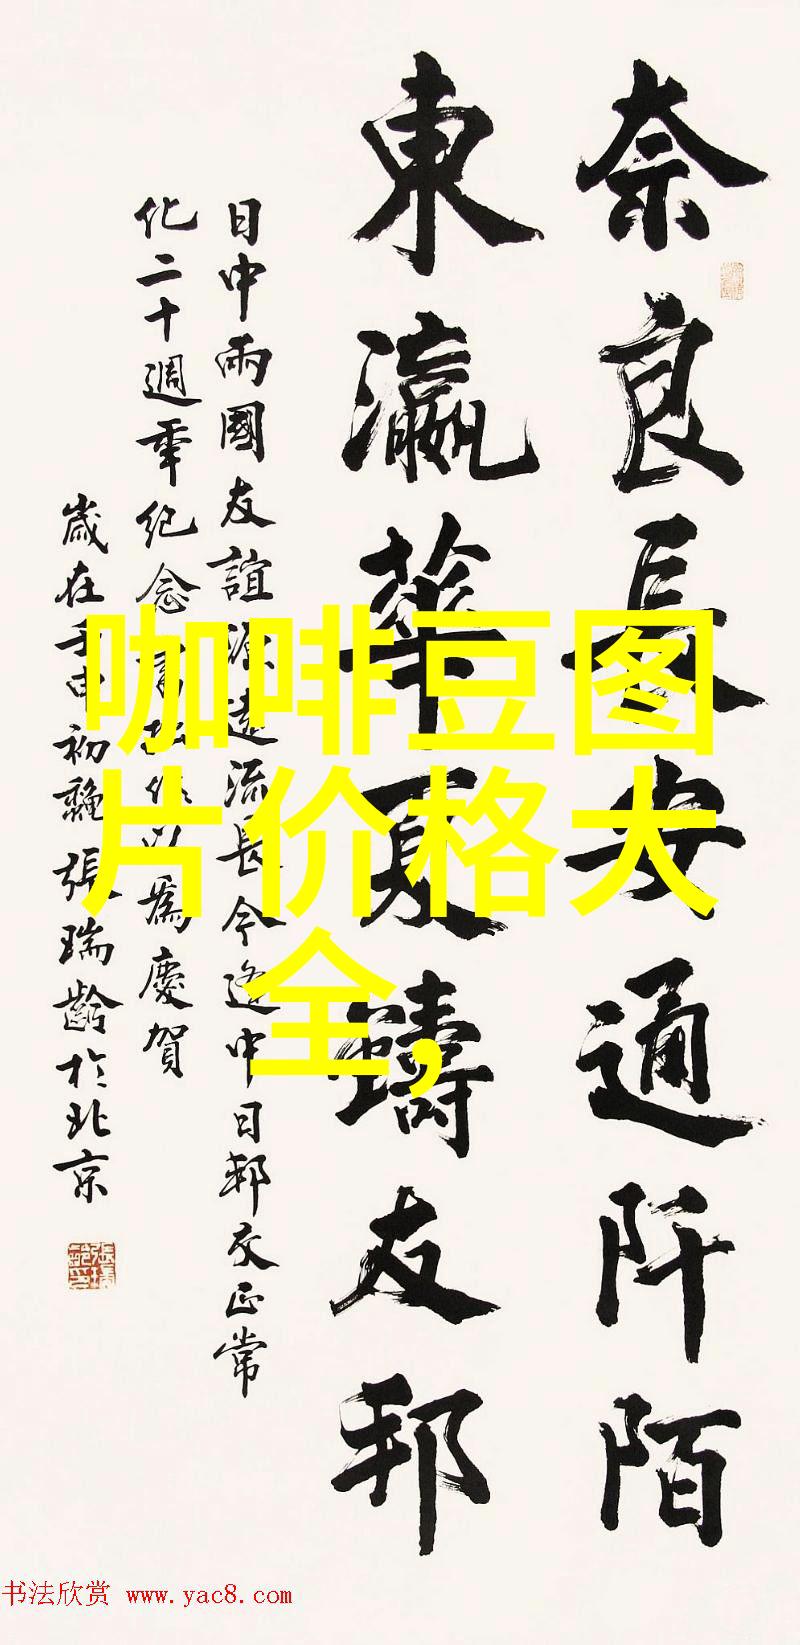 奈良長安通阡陌
東瀛華夏鑄友邦
日中兩國友誼源遠流長今逢中日邦交正常
化二十週年紀念書拙作以為慶賀
歲在壬申初龝張瑞齡於北京
咖啡豆图
片价格大
全,
书法欣赏 www.yac8.com